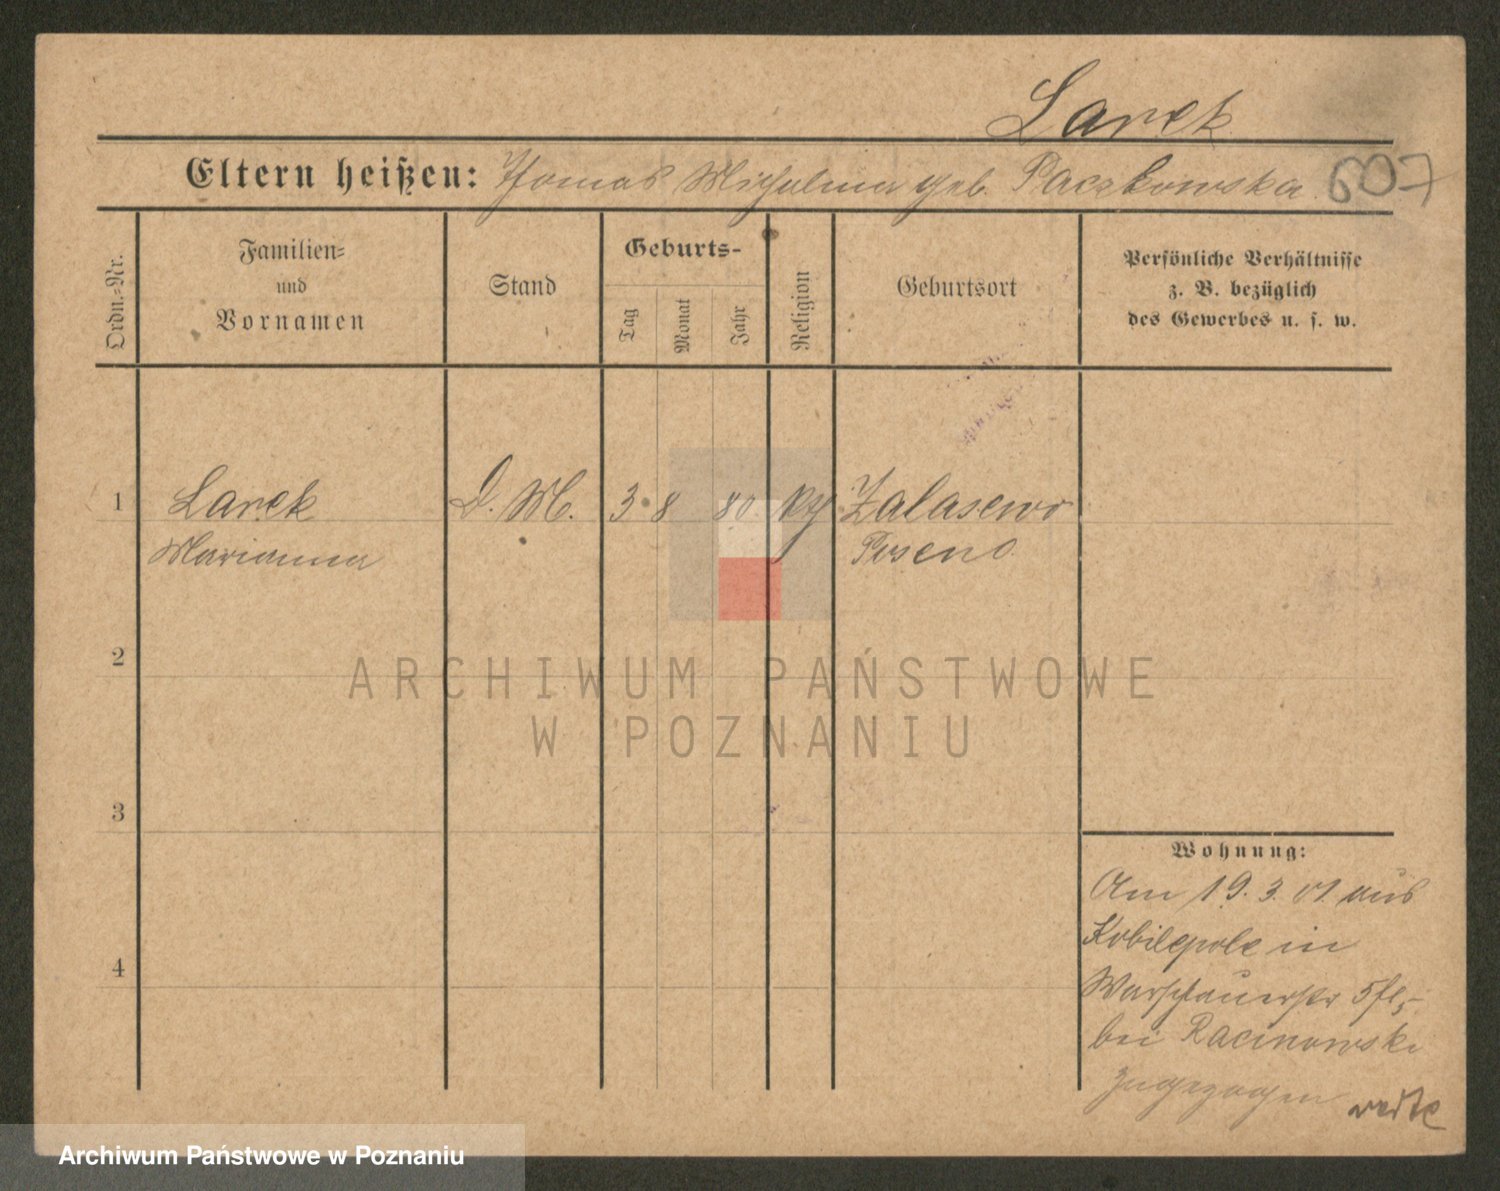 Larek
Eltern heißen: Thomas Michalina geb. Paczkowska 607
Ordn.-Nr.
Familien-
und
Vornamen
Stand
Geburts-
Tag
Monat
Jahr
Religion
Geburtsort
Persönliche Verhältnisse
z. B. bezüglich
des Gewerbes u. s. w.
1 Larek D. M. 3 8 80 kth Zalasewo
Marianna Posen O.
2
ARCHIWUM PAŃSTWOWE
W POZNANIU
3
Wohnung:
Am 19.3.01 aus
Kobilepole in
4
Warschauerstr
bei Racinowski
zugezogen
Archiwum Państwowe w Poznaniu